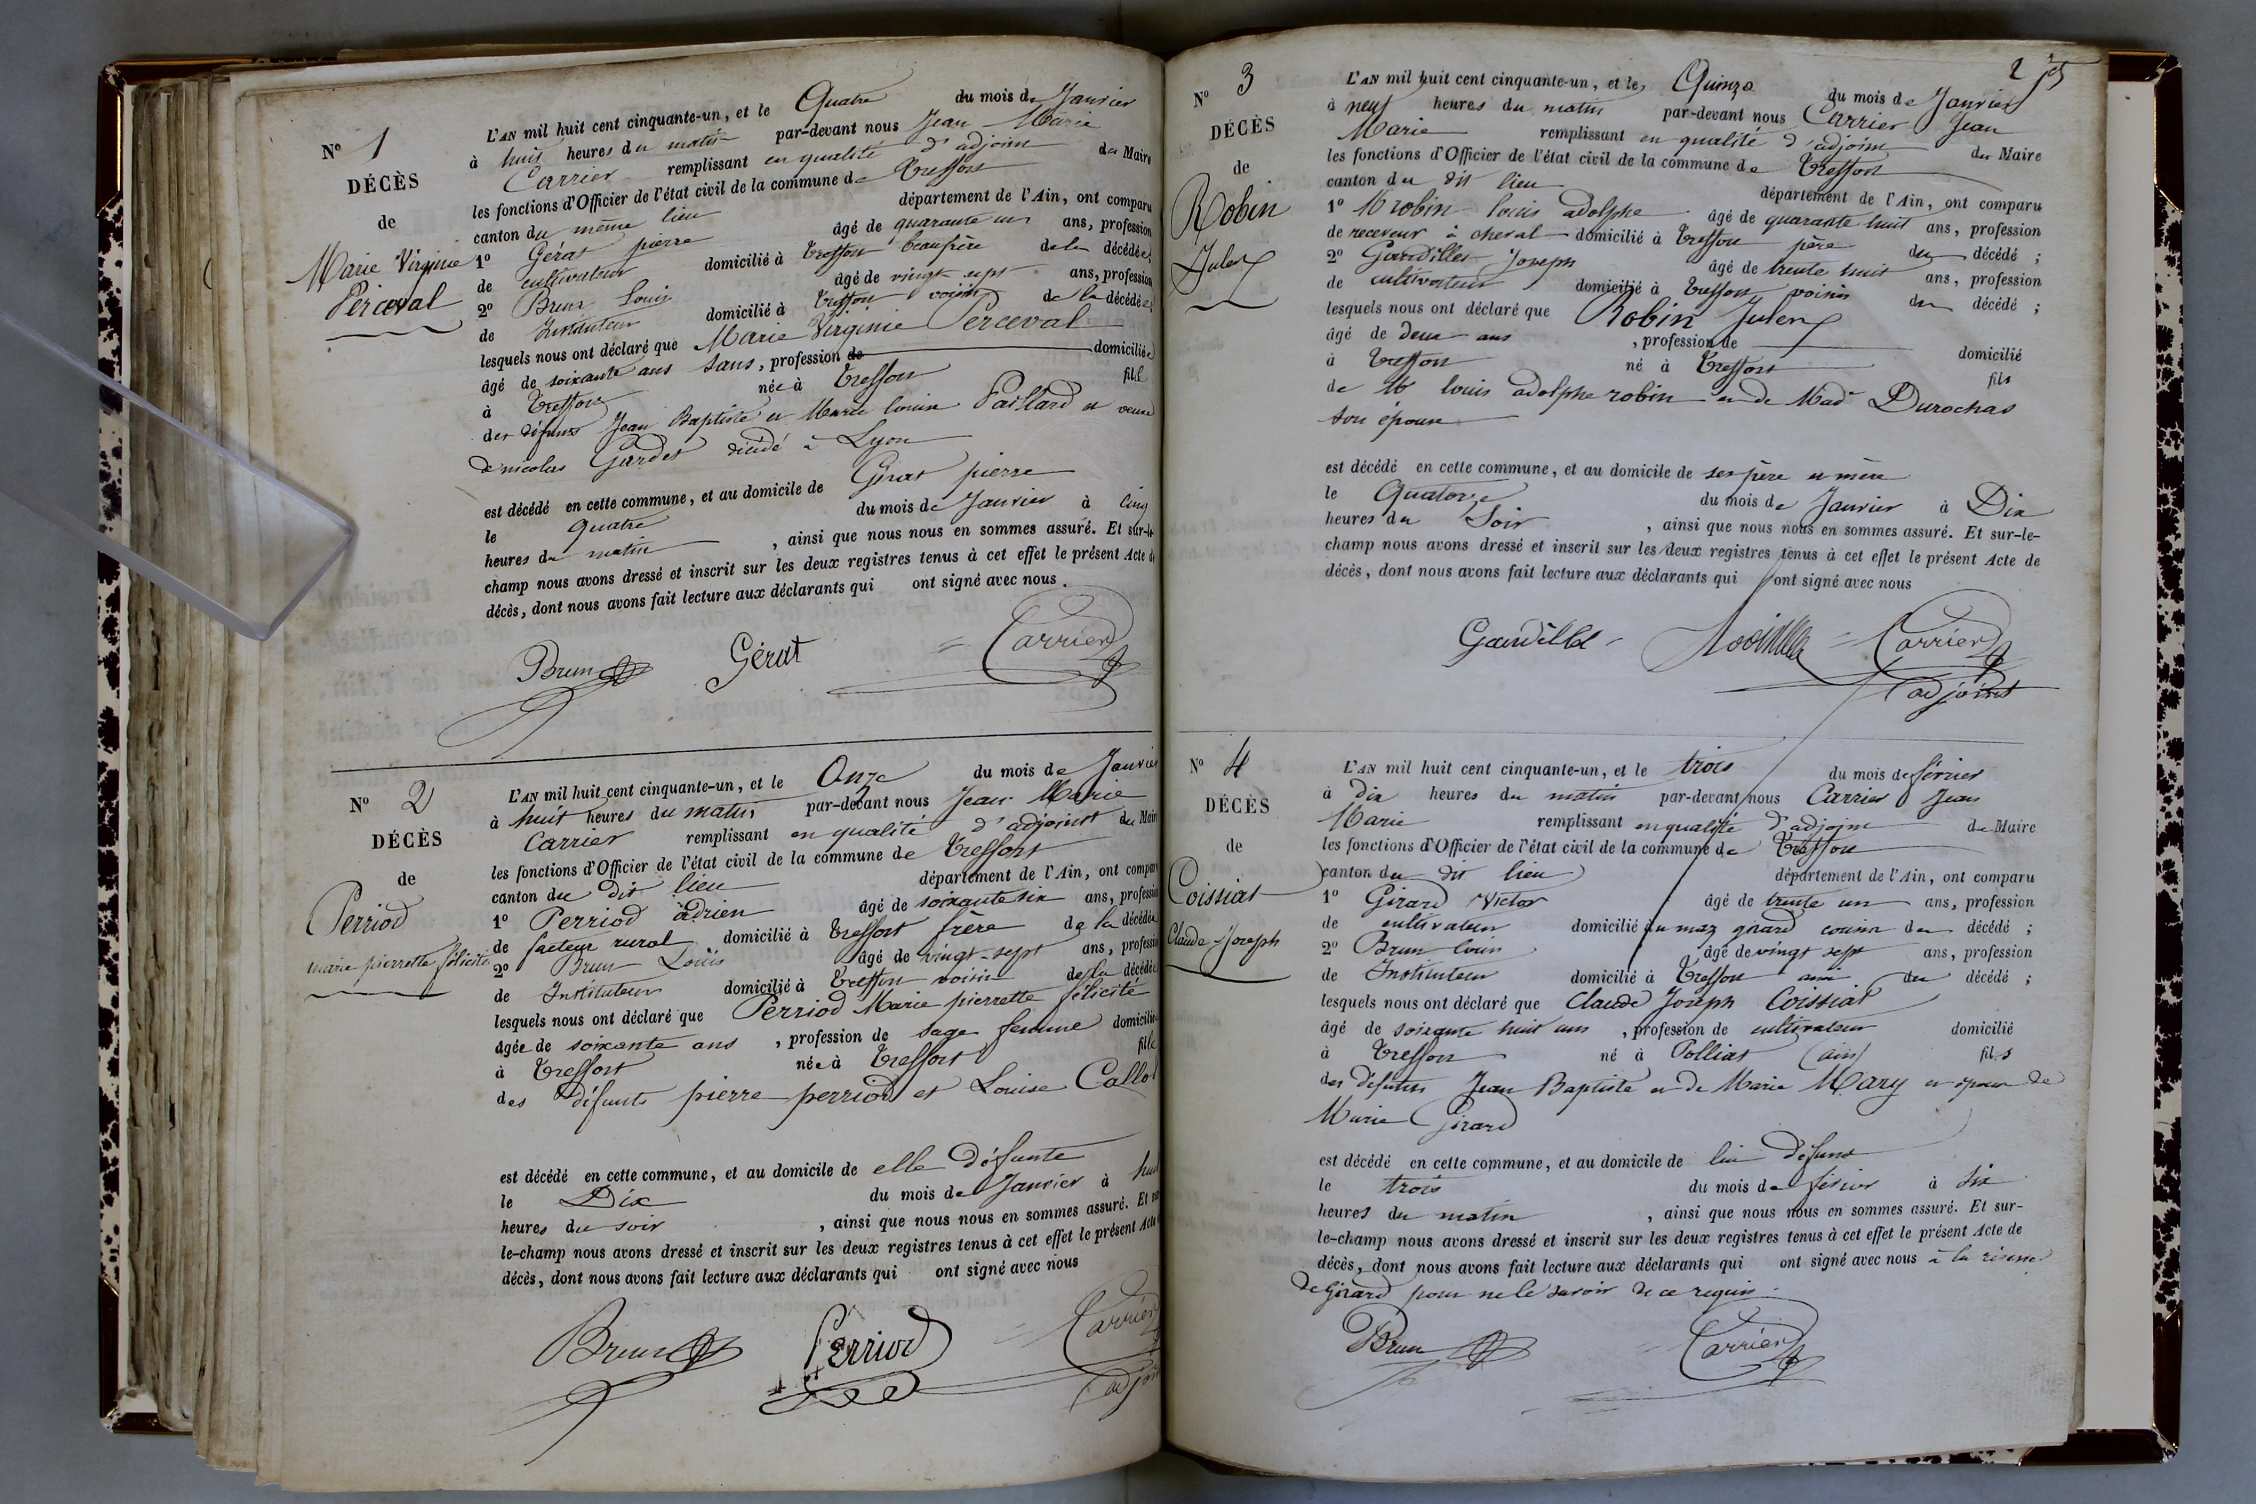 N° 1
DÉCÈS
de
Marie Virginie
Perceval
L'AN mil huit cent cinquante-un, et le Quatre du mois de Janvier
à huit heures du matin par-devant nous Jean-Marie
Carrier remplissant en qualité d'adjoint du Maire
les fonctions d'Officier de l'état civil de la commune de Treffort
canton du même lieu département de l'Ain, ont comparu
1° Gérat pierre âgé de quarante un ans, profession
de cultivateur domicilié à Treffort beaufrère de la décédée;
2° Brun Louis âgé de vingt sept ans, profession
de Instituteur domicilié à Treffort voisin de la décédée;
lesquels nous ont déclaré que Marie Virginie Perceval
âgé de soixante ans sans, profession de domiciliée
à Treffort née à Treffort fille
des défunts Jean Baptiste et Marie louise Paillard et veuve
de nicolas Gardet décédé à Lyon
est décédé en cette commune, et au domicile de Gérat pierre
le quatre du mois de Janvier à cinq
heures du matin, ainsi que nous nous en sommes assuré. Et sur-le-
champ nous avons dressé et inscrit sur les deux registres tenus à cet effet le présent Acte de
décès, dont nous avons fait lecture aux déclarants qui ont signé avec nous.
Brun Gérat Carrier
N° 2
DÉCÈS
de
Perriod
marie pierrette félicité
L'AN mil huit cent cinquante-un, et le Onze du mois de Janvier
à huit heures du matin par-devant nous Jean-Marie
Carrier remplissant en qualité d'adjoint du Maire
les fonctions d'Officier de l'état civil de la commune de Treffort
canton du dit lieu département de l'Ain, ont comparu
1° Perriod adrien âgé de soixante six ans, profession
de facteur rural domicilié à Treffort frère de la décédée
2° Brun Louis âgé de vingt-sept ans, profession
de Instituteur domicilié à Treffort voisin de la décédée
lesquels nous ont déclaré que Perriod Marie pierrette félicité
âgée de soixante ans, profession de sage femme domiciliée
à Treffort née à Treffort fille
des défunts pierre perriod et Louise Callot
est décédé en cette commune, et au domicile de elle défunte
le Dix du mois de Janvier à huit
heures du soir, ainsi que nous nous en sommes assuré. Et sur-
le-champ nous avons dressé et inscrit sur les deux registres tenus à cet effet le présent Acte
décès, dont nous avons fait lecture aux déclarants qui ont signé avec nous
Brun Perriod Carrier
adjoint
2
N° 3
DÉCÈS
de
Robin
Jules
L'AN mil huit cent cinquante-un, et le Quinze du mois de Janvier
à neuf heures du matin par-devant nous Carrier Jean
Marie remplissant en qualité d'adjoint du Maire
les fonctions d'Officier de l'état civil de la commune de Treffort
canton du dit lieu département de l'Ain, ont comparu
1° Mr robin louis adolphe âgé de quarante huit ans, profession
de receveur à cheval domicilié à Treffort père du décédé;
2° Gandillet Joseph âgé de trente huit ans, profession
de cultivateur domicilié à Treffort voisin du décédé;
lesquels nous ont déclaré que Robin Jules
âgé de deux ans, profession de domicilié
à Treffort né à Treffort fils
de Mr louis adolphe robin et de Made Durochas
son épouse
est décédé en cette commune, et au domicile de ses père et mère
le Quatorze du mois de Janvier à Dix
heures du Soir, ainsi que nous nous en sommes assuré. Et sur-le-
champ nous avons dressé et inscrit sur les deux registres tenus à cet effet le présent Acte de
décès, dont nous avons fait lecture aux déclarants qui ont signé avec nous
Gandillet Carrier
adjoint
N° 4
DÉCÈS
de
Coissiat
Claude Joseph
L'AN mil huit cent cinquante-un, et le trois du mois de février
à dix heures du matin par-devant nous Carrier Jean
Marie remplissant en qualité d'adjoint du Maire
les fonctions d'Officier de l'état civil de la commune de Treffort
canton du dit lieu département de l'Ain, ont comparu
1° Girard Victor âgé de trente un ans, profession
de cultivateur domicilié au maz girard cousin du décédé;
2° Brun louis âgé de vingt sept ans, profession
de Instituteur domicilié à Treffort ami du décédé;
lesquels nous ont déclaré que Claude Joseph Coissiat
âgé de soixante huit ans, profession de cultivateur domicilié
à Treffort né à Polliat (ain) fils
des défunts Jean Baptiste et de Marie Mary et époux de
Marie Girard
est décédé en cette commune, et au domicile de lui défunt
le trois du mois de février à six
heures du matin, ainsi que nous nous en sommes assuré. Et sur-
le-champ nous avons dressé et inscrit sur les deux registres tenus à cet effet le présent Acte de
décès, dont nous avons fait lecture aux déclarants qui ont signé avec nous à la réserve
de Girard pour ne le savoir de ce requis.
Brun Carrier